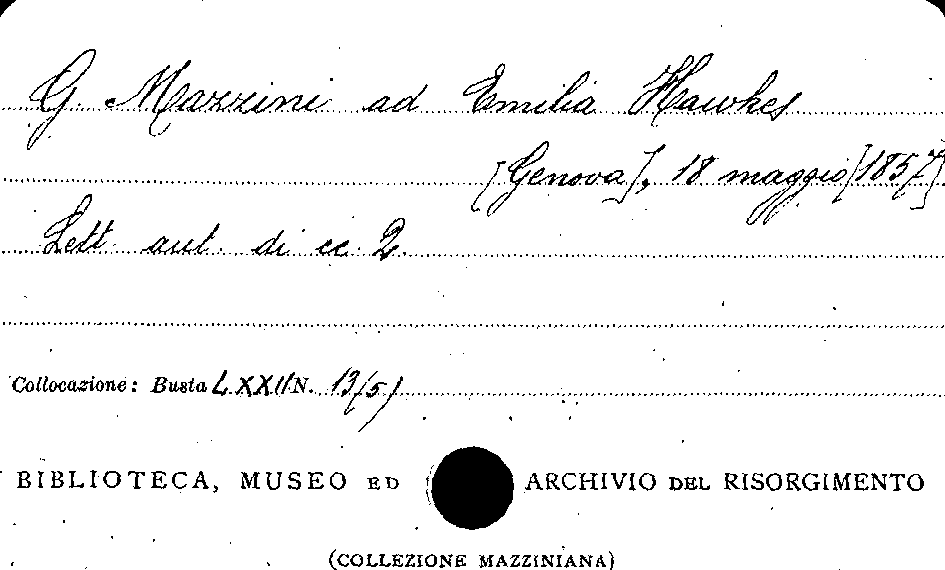 G. Mazzini ad Emilia Hawkes
[Genova], 18 maggio [1857]
Lett. aut. di cc. 2.
Collocazione: Busta LXXII N. 13(5)
BIBLIOTECA, MUSEO ED ARCHIVIO DEL RISORGIMENTO
(COLLEZIONE MAZZINIANA)